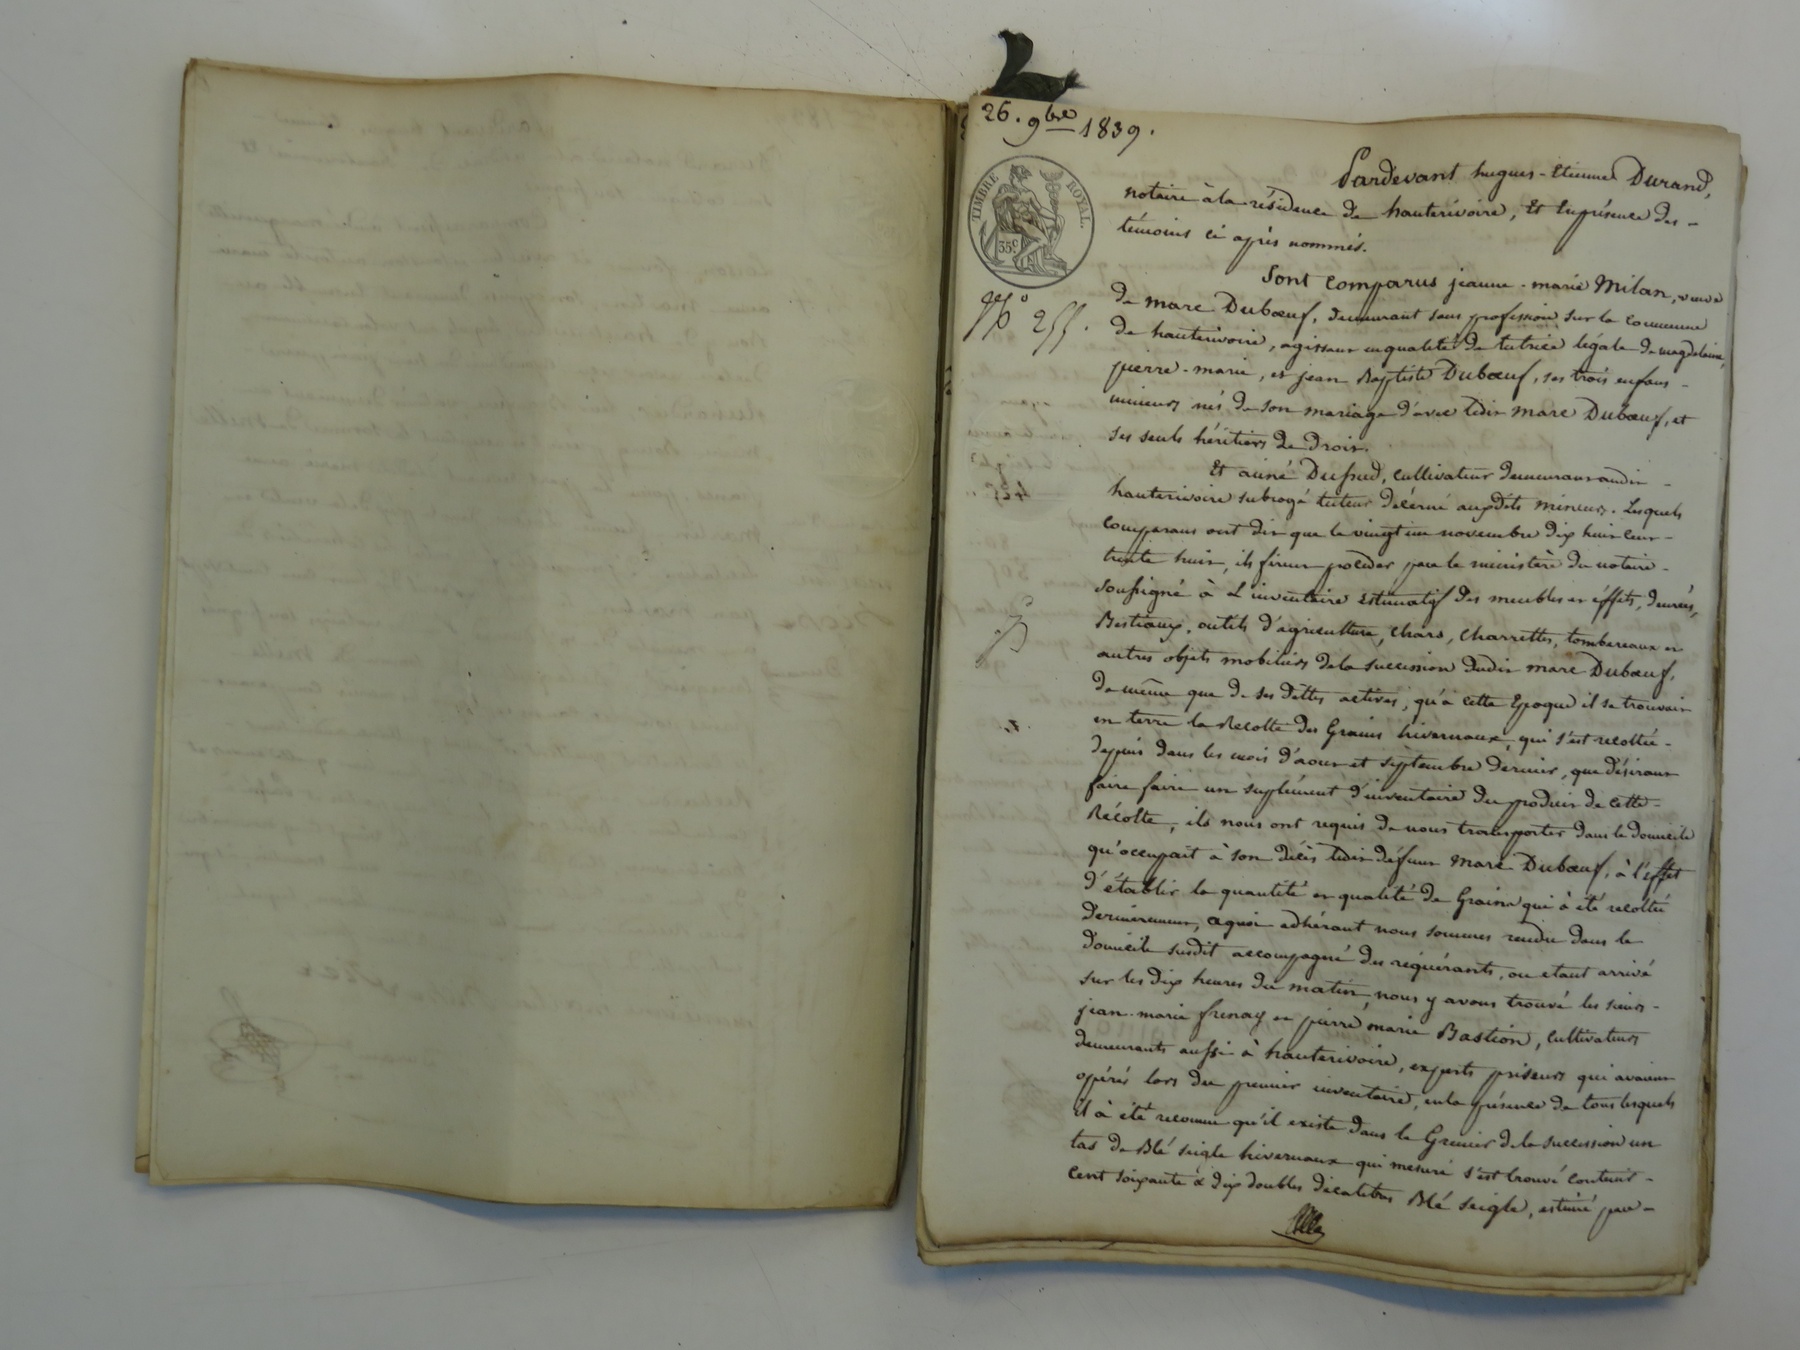 26. 9bre 1839.
TIMBRE ROYAL.
35c
No 255.
Pardevant hugues-Etienne Durand,
notaire à la résidence de hauterivoire, Et Enprésence des-
témoins ci après nommés.
Sont comparus jeanne-marie Milan, veuve
de marc Dubœuf, demeurant sans profession sur la commune
de hauterivoire, agissant enqualité de tutrice légale de magdelaine,
pierre-marie, et jean Baptiste Dubœuf, ses trois enfans-
mineurs nés de son mariage d'avec ledit marc Dubœuf, et
ses seuls héritiers de droit.
Et aimé Dufud, cultivateur demeurant audit-
hauterivoire subrogé tuteur décerné auxdits mineurs. Lesquels
comparans ont dit que le vingt un novembre dix huit cent-
trente huit, ils firent procéder par le ministère du notaire-
soussigné à L'inventaire estimatif des meubles et éffets, denrées,
Bestiaux, outils d'agriculture, chars, charrettes, tombereaux et
autres objets mobiliers de la succession dudit marc Dubœuf,
de même que de ses dettes actives; qu'à cette Epoque il se trouvait
en terre la Récolte des Grains hivernaux, qui s'est récoltée-
depuis dans les mois d'aout et septembre dernier, que désirant
faire faire un suplément d'inventaire du produit de cette-
Récolte, ils nous ont requis de nous transporter dans le domicile
qu'occupait à son décès ledit défunt Marc Dubœuf, à l'effet
d'établir la quantité et qualité de Grains qui à été récoltée
dernièrement, aquoi adhérant nous sommes rendu dans le
domicile susdit accompagné des requérants, ou etant arrivé
sur les dix heures du matin, nous y avons trouvé les sieurs-
jean-marie frenay et pierre marie Bastion, cultivateurs
demeurants aussi à hauterivoire, experts priseurs qui avaient
opérés lors du premier inventaire, en la présence de tous lesquels
il à été reconnu qu'il existe dans le Grenier de la succession un
tas de Blé seigle hivernaux qui mesuré s'est trouvé contenir-
cent soixante & dix doubles décalitres Blé seigle, estimé par-